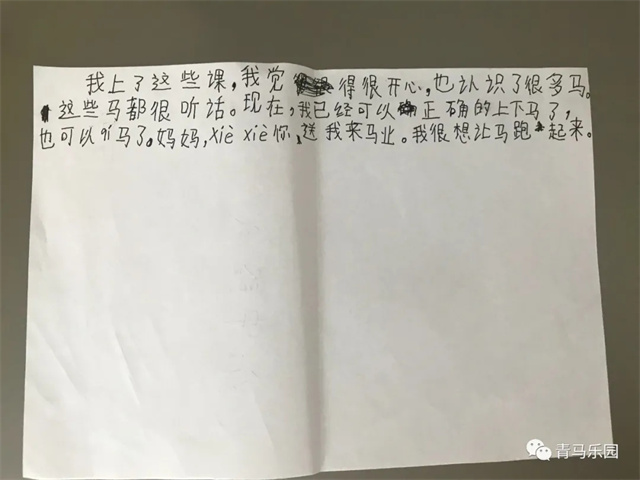 我上了这些课,我觉得很开心,也认识了很多马。
这些马都很听话。现在,我已经可以正确的上下马了,
也可以吖马了。妈妈,xiè xiè你、送我来马业。我很想让马跑起来。
青马乐园